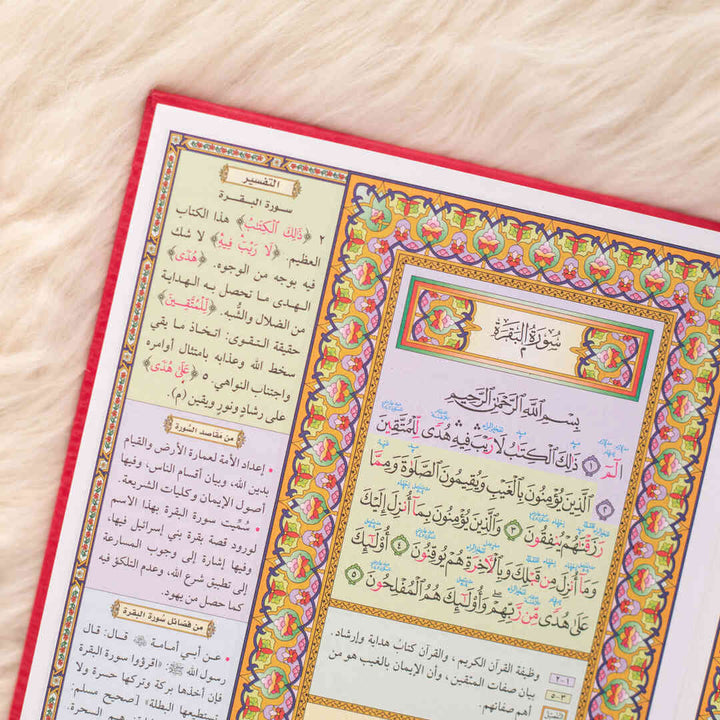 سُورَةُ البَقَرَةِ
بِسْمِ اللَّهِ الرَّحْمَٰنِ الرَّحِيمِ
الٓمٓ ١ ذَٰلِكَ ٱلْكِتَٰبُ لَا رَيْبَ فِيهِ هُدًى لِّلْمُتَّقِينَ
٢ ٱلَّذِينَ يُؤْمِنُونَ بِٱلْغَيْبِ وَيُقِيمُونَ ٱلصَّلَوٰةَ وَمِمَّا
رَزَقْنَٰهُمْ يُنفِقُونَ ٣ وَٱلَّذِينَ يُؤْمِنُونَ بِمَآ أُنزِلَ إِلَيْكَ
وَمَآ أُنزِلَ مِن قَبْلِكَ وَبِٱلْءَاخِرَةِ هُمْ يُوقِنُونَ ٤ أُو۟لَٰٓئِكَ
عَلَىٰ هُدًى مِّن رَّبِّهِمْ وَأُو۟لَٰٓئِكَ هُمُ ٱلْمُفْلِحُونَ ٥
١-٢ وظيفة القرآن الكريم، والقرآن كتابُ هداية وإرشاد.
٣-٥ بيان صفات المتقين، وأن الإيمان بالغيب هو من
أهم صفاتهم.
التفسير
سورة البقرة
٢ ﴿ذَٰلِكَ ٱلْكِتَٰبُ﴾ هذا الكتاب
العظيم. ﴿لَا رَيْبَ فِيهِ﴾ لا شك
فيه بوجه من الوجوه. ﴿هُدًى﴾
الهدى ما تحصل به الهداية
من الضلال والشُّبه. ﴿لِّلْمُتَّقِينَ﴾
حقيقة التقوى: اتخاذ ما يقي
سخط الله وعذابه بامتثال أوامره
واجتناب النواهي. ٥ ﴿عَلَىٰ هُدًى﴾
على رشادٍ ونورٍ ويقين (م).
من مقاصد السُّورة
• إعداد الأمة لعمارة الأرض والقيام
بدين الله، وبيان أقسام الناس، وفيها
أصول الإيمان وكليات الشريعة.
• سُمِّيت سورة البقرة بهذا الاسم
لورود قصة بقرة بني إسرائيل فيها،
وفيها إشارة إلى وجوب المسارعة
إلى تطبيق شرع الله، وعدم التلكؤ فيه
كما حصل من يهود.
من فضائل سُورة البقرة
• عن أبي أمامة ﷺ قال: قال
رسول الله ﷺ: «اقرؤوا سورة البقرة
فإن أخذها بركة وتركها حسرة ولا
تستطيعها البطلة» [صحيح مسلم:
هم السحرة.